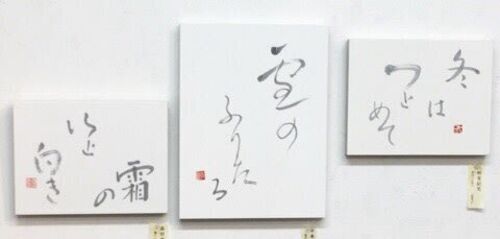 冬は
つとめて
雪の
ふりたる
霜の
いと
白き